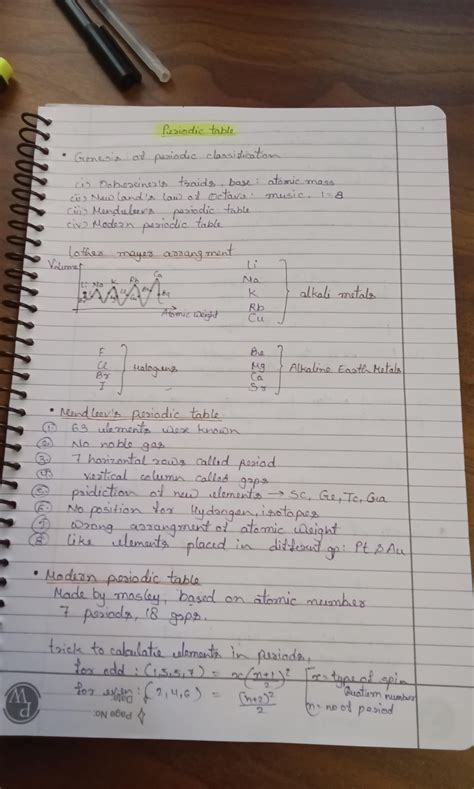 Periodic table
• Genesis of periodic classification
(i) Dobereiner's traids, base: atomic mass
(ii) Newland's law of Octave: music, 1=8
(iii) Menduleev's periodic table
(iv) Modern periodic table
Lother mayer arrangment
Volume
Li Na K Rb Cs
Atomic weight
Li
Na
K
Rb
Cu
alkali metals
F
Cl
Br
I
Halogens
Be
Mg
Ca
Sr
Alkaline Earth Metals
• Mendleev's periodic table
① 63 elements were known
② No noble gas
③ 7 horizontal rows called period
④ vertical column called grps
⑤ pridiction of new elements → Sc, Ge, Tc, Ga
⑥ No position for Hydrogen, isotopes
⑦ wrong arrangment of atomic weight
⑧ like elements placed in different gp: Pt & Au
• Modern periodic table
Made by mosley, based on atomic number
7 periods, 18 grps.
trick to calculate elements in periods,
for odd : (1,3,5,7) = (n+1)²/2
for even : (2,4,6) = (n+2)²/2
[x = type of spin
Quatum number
n = no of period
PW
Date
Page No: